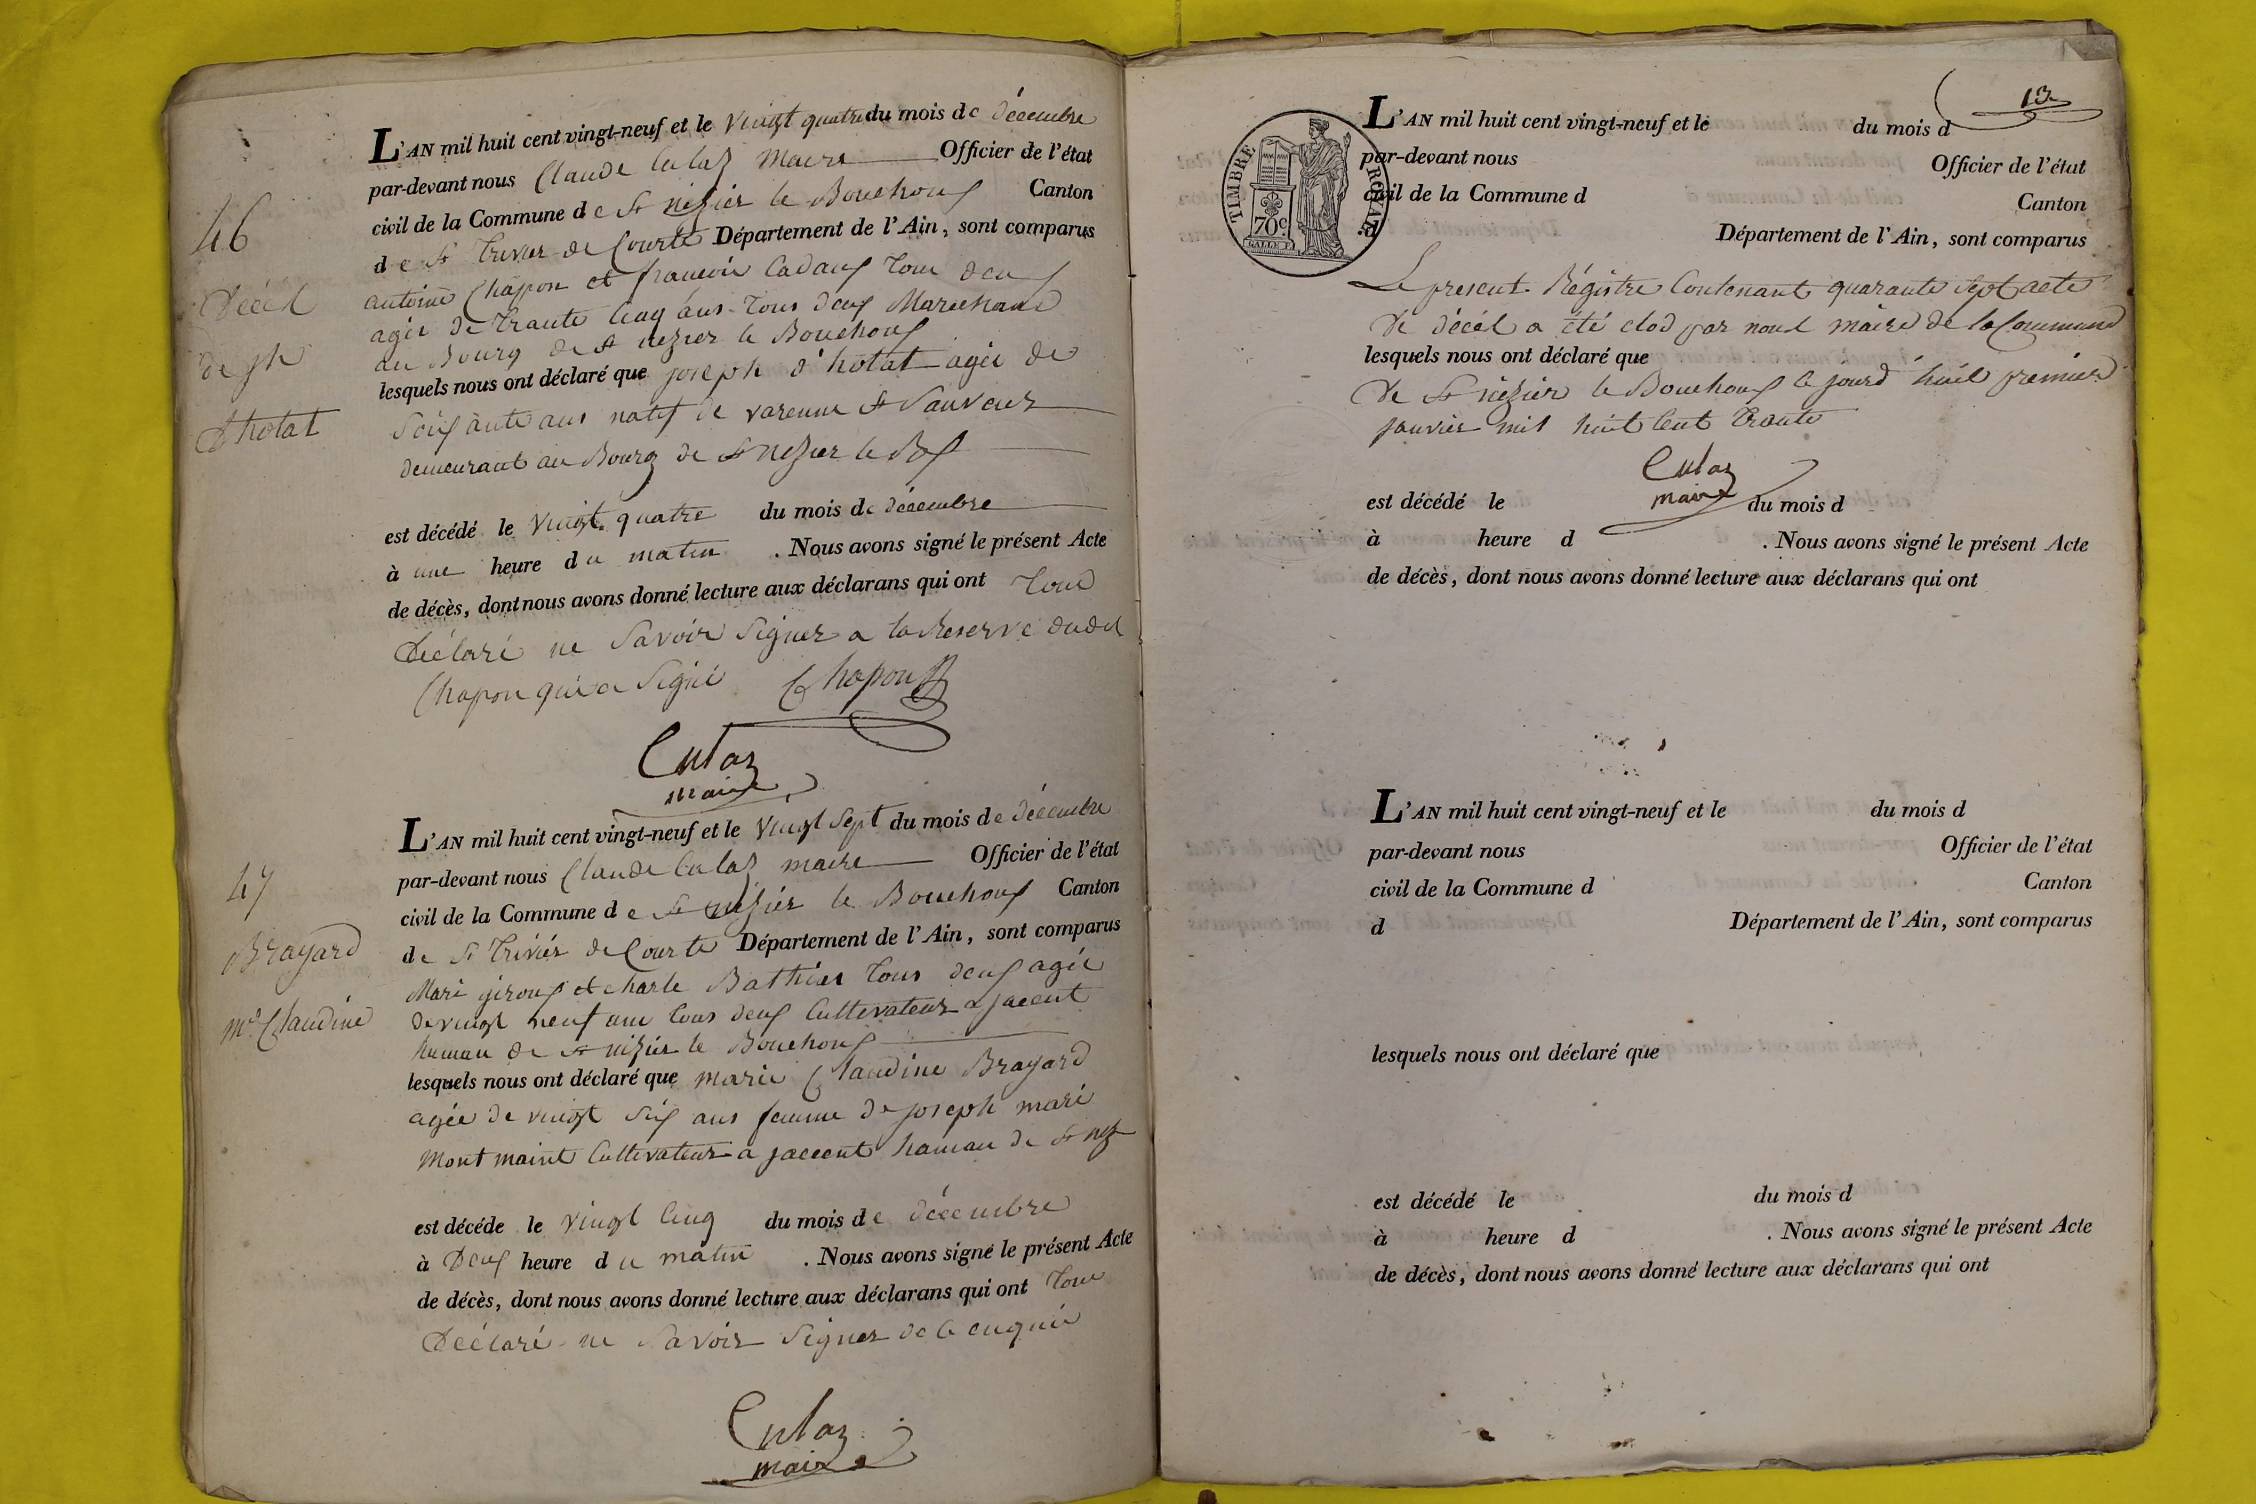 46
Décèl
de jh
Dhotat
L'AN mil huit cent vingt-neuf et le vingt quatre du mois de décembre
par-devant nous Claude Culaz Maire Officier de l'état
civil de la Commune de St nizier le Bouchoux Canton
de St Trivier de Courte Département de l'Ain, sont comparus
antoine Chapon et francois Cadaux tous deux
agée de trante cinq ans tous deux Marechand
au Bourg de St nizier le Bouchoux
lesquels nous ont déclaré que joseph d'hotat agée de
soixante ans natif de varenne St Sauveur
demeurant au Bourg de St Nizier le Bx
est décédé le vingt quatre du mois de décembre
à une heure du matin . Nous avons signé le présent Acte
de décès, dont nous avons donné lecture aux déclarans qui ont tous
Déclaré ne savoir signer a la Reserve dudit
Chapon qui a signé Chapon
Culaz
maire
47
Brayard
mie Claudine
L'AN mil huit cent vingt-neuf et le vingt sept du mois de décembre
par-devant nous Claude Culaz maire Officier de l'état
civil de la Commune de St nizier le Bouchoux Canton
de St Trivier de Courte Département de l'Ain, sont comparus
Mari giroux et charle Bathier tous deux agée
de vingt neuf ans tous deux Cultivateur a jacent
hamau de St nizier le Bouchoux
lesquels nous ont déclaré que marie Claudine Brayard
agée de vingt six ans femme de joseph mari
Mont maint Cultivateur a jaccent hamau de St niz
est décéde le vingt cinq du mois de décembre
à Deux heure du matin . Nous avons signé le présent Acte
de décès, dont nous avons donné lecture aux déclarans qui ont tous
Déclaré ne savoir signer de ce enquis
Culaz
maire
13
L'AN mil huit cent vingt-neuf et le du mois d
TIMBRE ROYAL
70c.
par-devant nous Officier de l'état
civil de la Commune d Canton
Département de l'Ain, sont comparus
Le present Régistre Contenant quarante sept acte
de décèl a été clod par nous maire de la Commune
lesquels nous ont déclaré que
de St nizier le Bouchoux le jourd'huil premier
janvier mil huit cent trante
Culaz
maire
est décédé le du mois d
à heure d . Nous avons signé le présent Acte
de décès, dont nous avons donné lecture aux déclarans qui ont
L'AN mil huit cent vingt-neuf et le du mois d
par-devant nous Officier de l'état
civil de la Commune d Canton
d Département de l'Ain, sont comparus
lesquels nous ont déclaré que
est décédé le du mois d
à heure d . Nous avons signé le présent Acte
de décès, dont nous avons donné lecture aux déclarans qui ont